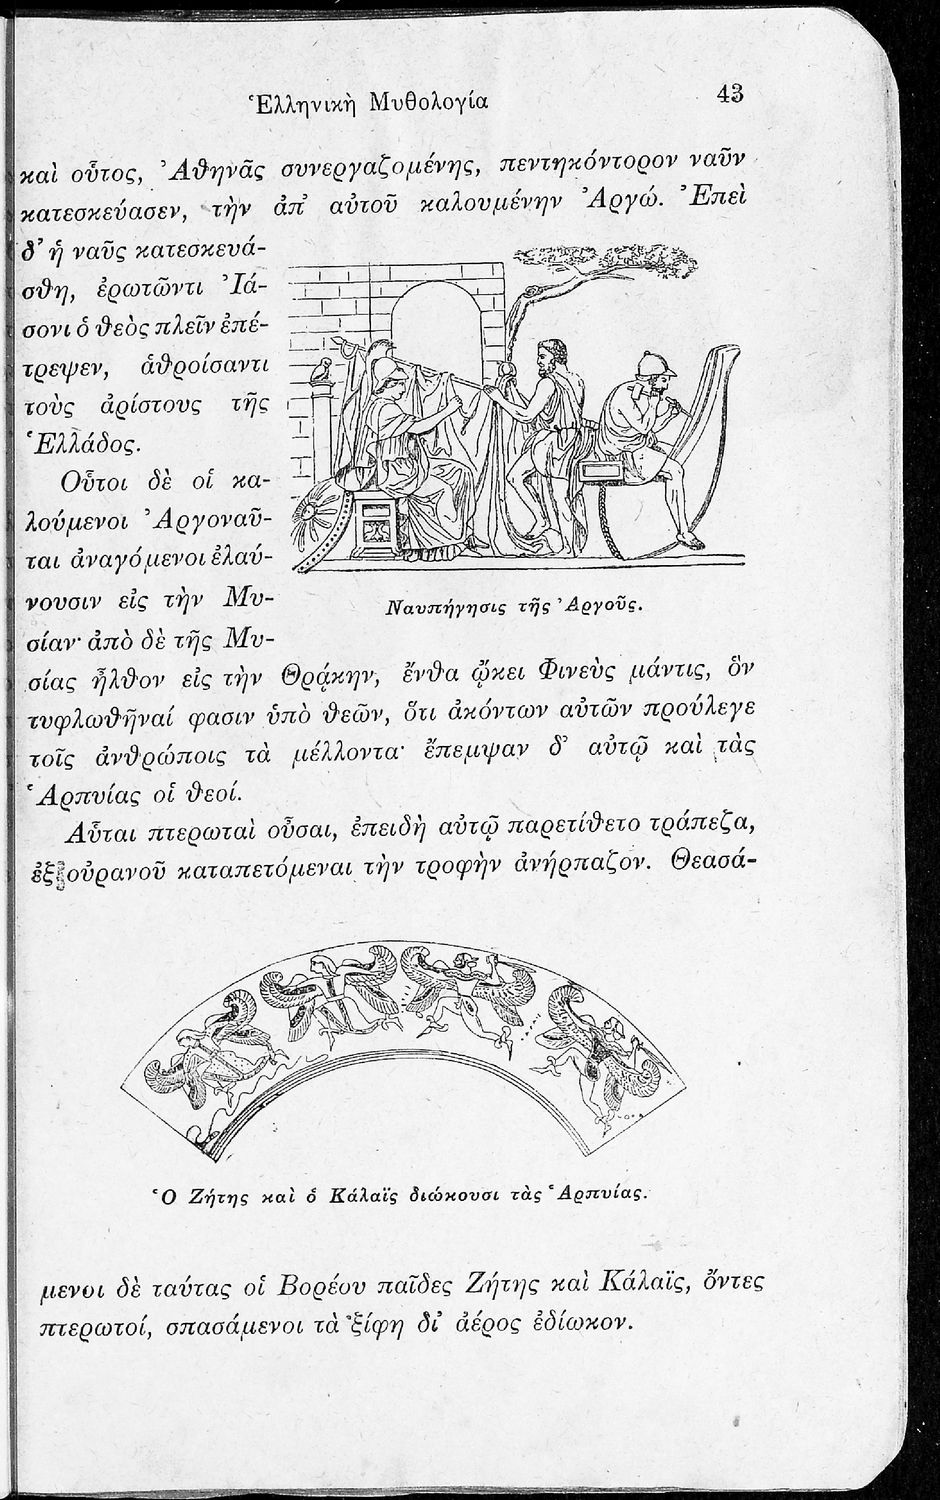 Ἑλληνικὴ Μυθολογία
43
καὶ οὗτος, Ἀθηνᾶς συνεργαζομένης, πεντηκόντορον ναῦν
κατεσκεύασεν, τὴν ἀπ' αὐτοῦ καλουμένην Ἀργώ. Ἐπεὶ
δ' ἡ ναῦς κατεσκευά-
σθη, ἐρωτῶντι Ἰά-
σονι ὁ θεὸς πλεῖν ἐπέ-
τρεψεν, ἁθροίσαντι
τοὺς ἀρίστους τῆς
Ἑλλάδος.
Οὗτοι δὲ οἱ κα-
λούμενοι Ἀργοναῦ-
ται ἀναγόμενοι ἐλαύ-
νουσιν εἰς τὴν Μυ-
σίαν· ἀπὸ δὲ τῆς Μυ-
Ναυπήγησις τῆς Ἀργοῦς.
σίας ἦλθον εἰς τὴν Θρᾴκην, ἔνθα ᾤκει Φινεὺς μάντις, ὃν
τυφλωθῆναί φασιν ὑπὸ θεῶν, ὅτι ἀκόντων αὐτῶν προύλεγε
τοῖς ἀνθρώποις τὰ μέλλοντα· ἔπεμψαν δ' αὐτῷ καὶ τὰς
Ἁρπυίας οἱ θεοί.
Αὗται πτερωταὶ οὖσαι, ἐπειδὴ αὐτῷ παρετίθετο τράπεζα,
ἐξ οὐρανοῦ καταπετόμεναι τὴν τροφὴν ἀνήρπαζον. Θεασά-
Ὁ Ζήτης καὶ ὁ Κάλαϊς διώκουσι τὰς Ἁρπυίας.
μενοι δὲ ταύτας οἱ Βορέου παῖδες Ζήτης καὶ Κάλαϊς, ὄντες
πτερωτοί, σπασάμενοι τὰ ξίφη δι' ἀέρος ἐδίωκον.